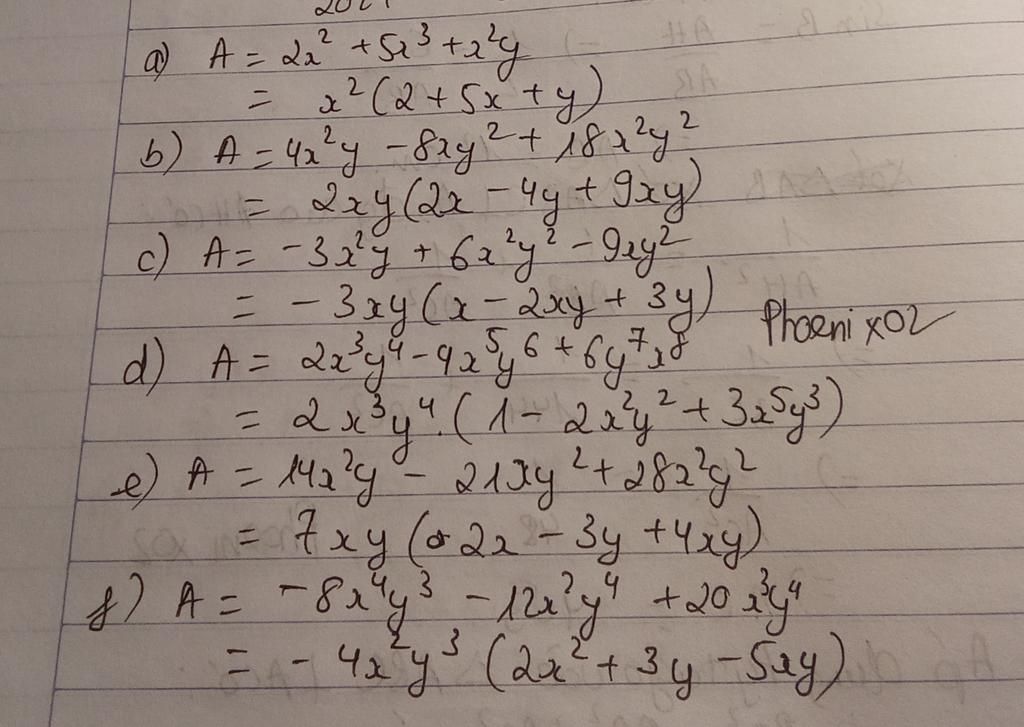 a) A = 2x² + 5x³ + x²y
= x²(2 + 5x + y)
b) A = 4x²y - 8xy² + 18x²y²
= 2xy(2x - 4y + 9xy)
c) A = -3x²y + 6x²y² - 9xy²
= -3xy(x - 2xy + 3y)
PhoenixO2
d) A = 2x³y⁴ - 4x⁵y⁶ + 6y⁷x⁸
= 2x³y⁴.(1 - 2x²y² + 3x⁵y³)
e) A = 14x²y - 21xy² + 28x²y²
= 7xy(2x - 3y + 4xy)
f) A = -8x⁴y³ - 12x²y⁴ + 20x³y⁴
= -4x²y³(2x² + 3y - 5xy)